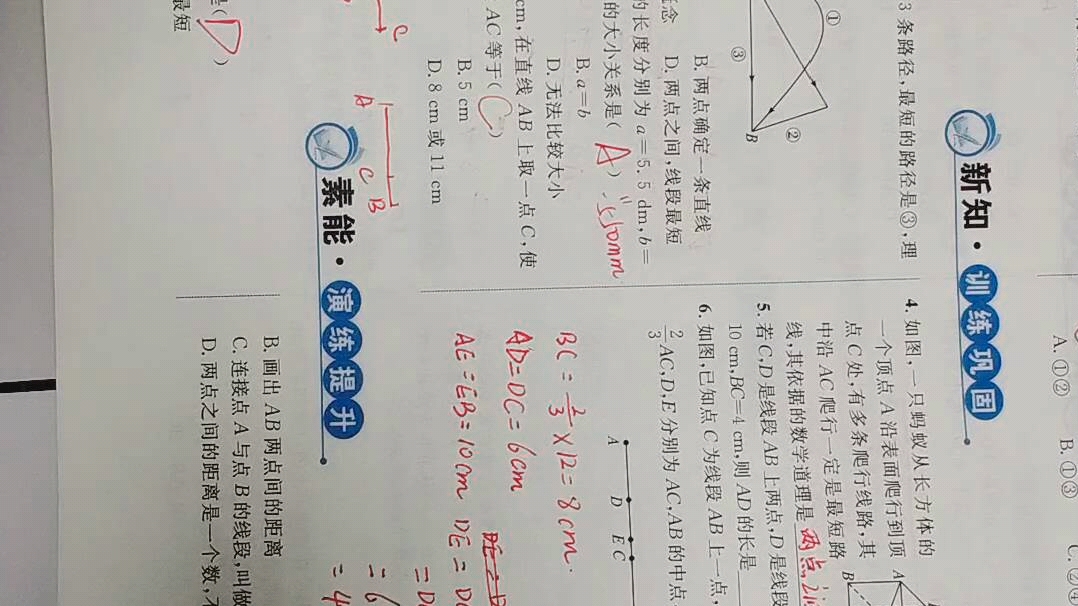 3 条路径,最短的路径是③,理
①
②
③
B
B. 两点确定一条直线
D. 两点之间,线段最短
的长度分别为 a=5.5 dm,b=
的大小关系是( A )
550mm
B. a=b
D. 无法比较大小
cm,在直线 AB 上取一点 C,使
AC 等于( C )
B. 5 cm
D. 8 cm 或 11 cm
C
A C B
( D )
最短
新知·训练巩固
A. ①②
B. ①③
C. ②④
4. 如图,一只蚂蚁从长方体的
一个顶点 A 沿表面爬行到顶
点 C 处,有多条爬行线路,其
中沿 AC 爬行一定是最短路
线,其依据的数学道理是 两点之间
A
B
5. 若 C,D 是线段 AB 上两点,D 是线段
10 cm,BC=4 cm,则 AD 的长是
6. 如图,已知点 C 为线段 AB 上一点,
2/3 AC,D,E 分别为 AC,AB 的中点
A D E C
BC = 2/3 × 12 = 8cm.
AD=DC=6cm
AE=EB=10cm DE=DC
=6
=4
素能·演练提升
B. 画出 AB 两点间的距离
C. 连接点 A 与点 B 的线段,叫做
D. 两点之间的距离是一个数,不